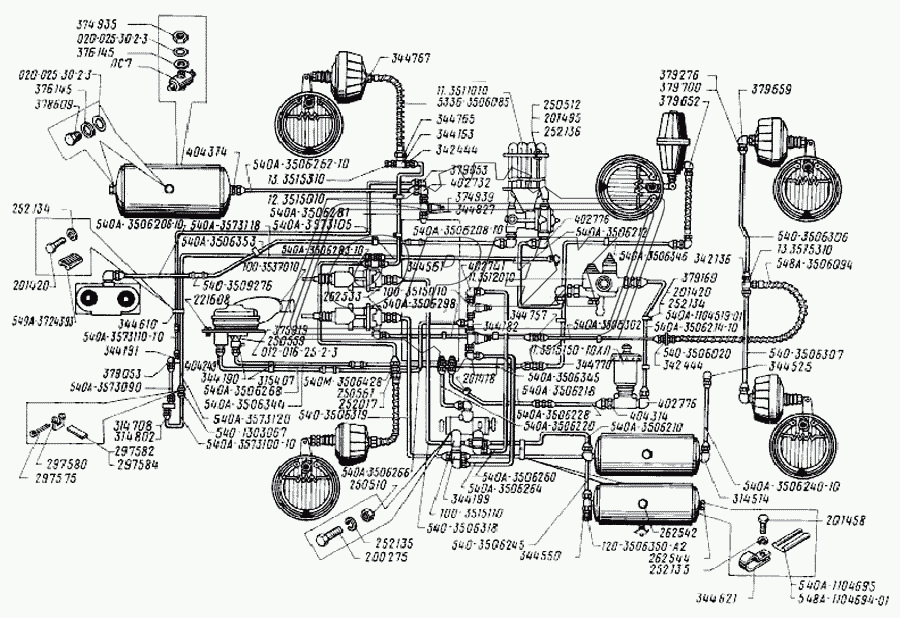 374935
020-025-30-2-3
376145
ПС7
020-025-30-2-3
376145
378609
404374
540А-3506262-10
13.3515310
344767
344765
344163
342444
11.3511010
5336-3506085
250512
201495
252136
379276
379700
379652
379659
379053
402732
374939
344827
12.3515010
540А-3506281
540А-3573105
252134
540А-3506206-10
540А-3573118
540А-3506353
540А-3506283-10
540А-3506208-10
402776
540А-3506212
540А-3506346
342136
540-3506306
13.3575310
548А-3506094
201420
540А-3724393
540-3509276
221608
100-3537010
344561
402741
11.3512010
262533
100-3515010
540А-3506298
379169
201420
252134
540А-1104519-01
540А-3506214-10
344610
540А-3573110-10
344191
375919
250559
012-016-25-2-3
344182
344757
540А-3506302
11.3515150-10ЛЛ
344770
540-3506020
342444
540-3506307
344525
379053
540А-3573090
344190
315407
540А-3506268
540А-3506344
540М-3506428
250561
252017
201418
540А-3506345
540А-3506218
540А-3573120
540-1303067
540А-3573100-10
540-3506319
540А-3506228
540А-3506220
540А-3506210
404314
402776
314708
314802
297580
297575
297582
297584
540А-3506266
250510
540А-3506260
540А-3506264
344199
100-3515110
540-3506318
540-3506245
344550
540А-3506240-10
314514
252135
200275
120-3506350-А2
262542
262544
252135
201458
344621
540А-1104695
548А-1104694-01